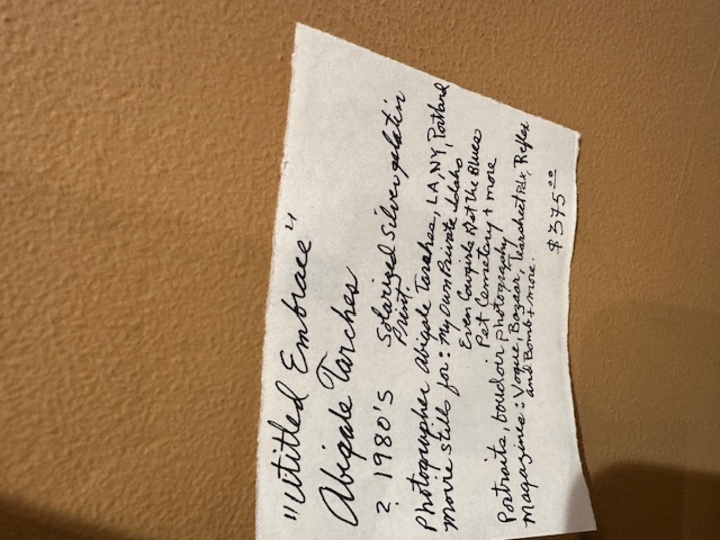 "Utitled Embrace"
Abigale Tarches
? 1980's Solarized Silver gelatin
Print.
Photographer Abigale Tarches, LA, NY, Portland
movie stills for: My Own Private Idaho
Even Cowgirls Get the Blues
Pet Cemetary + more
Portraits, boudoir photography
Magazines: Vogue, Bazaar, Tearsheet Pdx, Reflex
and Bomb + more.
$375.00